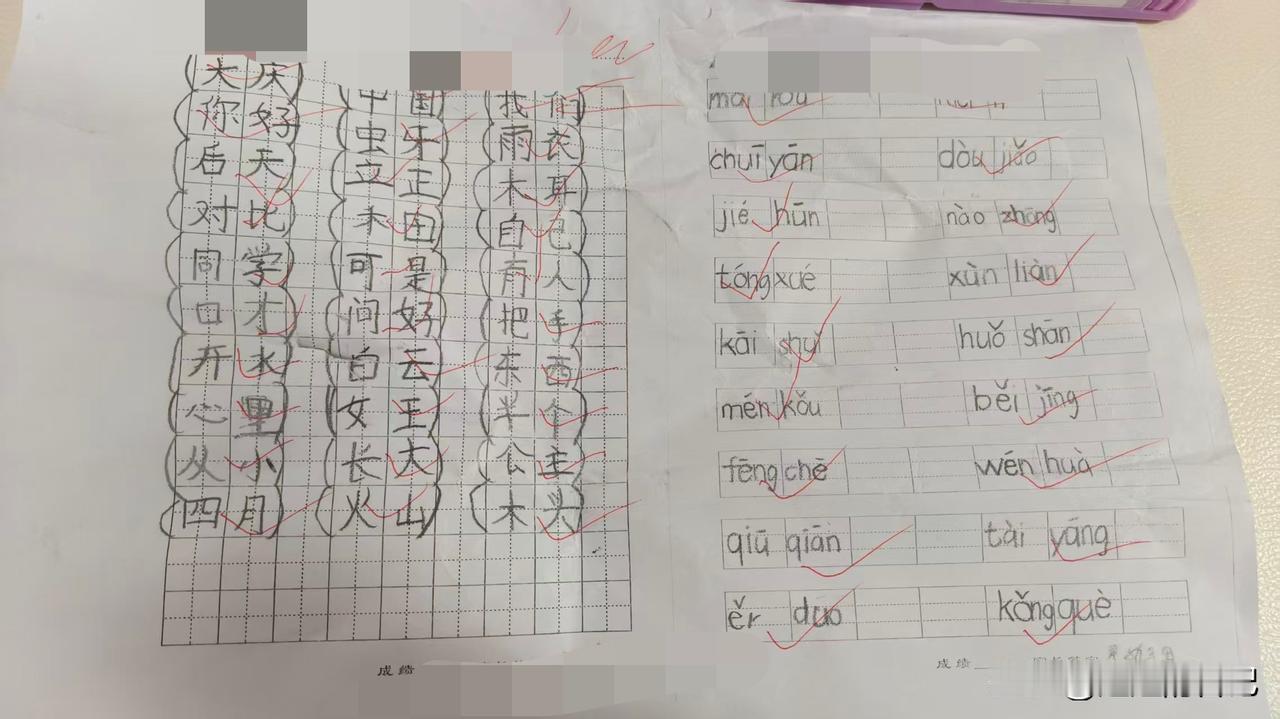 (大庆)
(你好) (中国) (我们)
(后天) (虫牙) (雨衣)
(对比) (立正) (木耳)
(同学) (禾田) (自己)
(口才) (可是) (有人)
(开水) (问好) (把手)
(心里) (白云) (东西)
(从小) (女王) (半个)
(四月) (长大) (公主)
(火山) (木头)
成绩
chuī yān dòu jiǎo
jié hūn nào zhōng
tóng xué xùn liàn
kāi shuǐ huǒ shān
mén kǒu běi jīng
fēng chē wén huà
qiū qiān tài yáng
ěr duo kǒng què
成绩